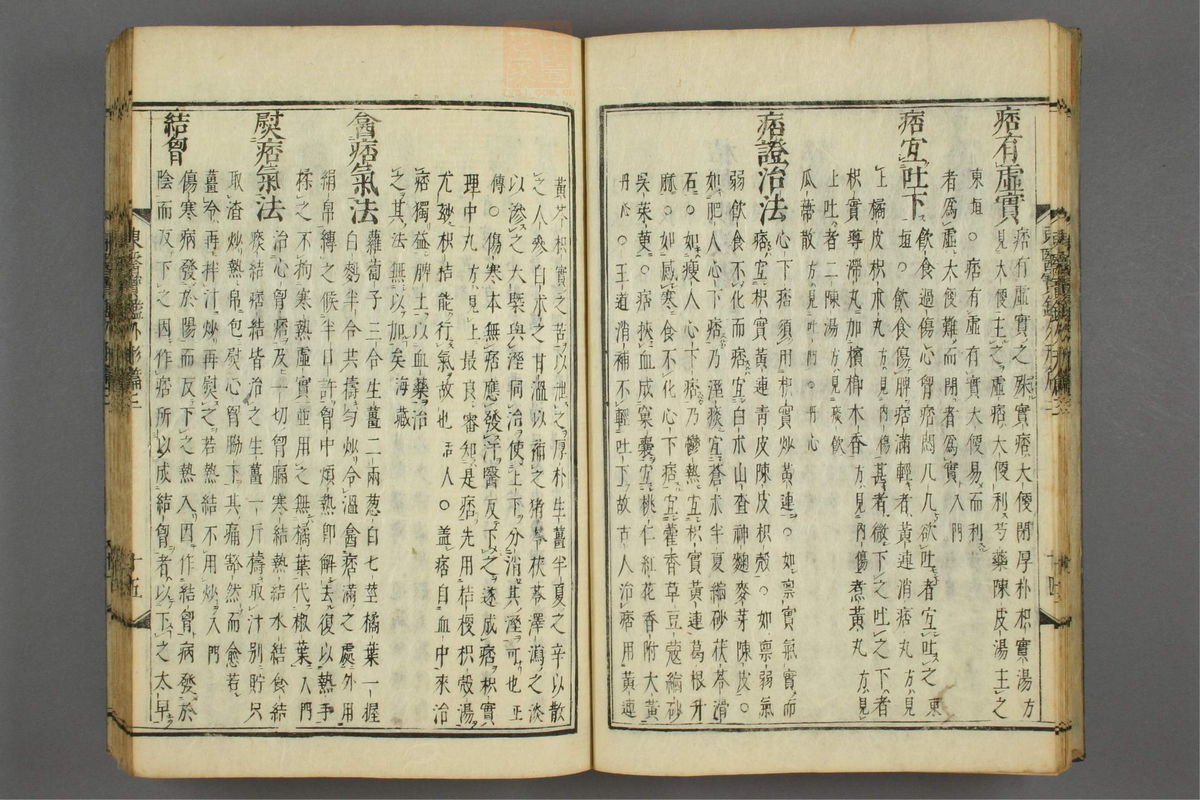 痞有虛實
痞有虛實之殊實痞大便閉厚朴枳實湯方
見大便主之虛痞大便利芍藥陳皮湯主之
東垣○痞有虛有實大便易而利
者爲虛大便難而閉者爲實入門
痞宜吐下
飮食過傷心胷痞悶兀兀欲吐者宜吐之東
垣○飮食傷脾痞滿輕者黃連消痞丸方見
上橘皮枳朮丸方見內傷甚者微下之吐之下者
枳實導滯丸加檳榔木香方見內傷煮黃丸方見
上吐者二陳湯方見痰飮
瓜蔕散方見吐門○丹心
痞證治法
心下痞須用枳實炒黃連○如稟實氣實而
痞宜枳實黃連靑皮陳皮枳殼○如稟弱氣
弱飮食不化而痞宜白朮山査神麴麥芽陳皮○
如肥人心下痞乃溼痰宜蒼朮半夏縮砂茯苓滑
石○如瘦人心下痞乃鬱熱宜枳實黃連葛根升
麻○如感寒食不化心下痞宜藿香草豆蔻縮砂
吳茱萸○痞挾血成窠囊宜桃仁紅花香附大黃
丹心○王道消補不輕吐下故古人治痞用黃連
黃芩枳實之苦以泄之厚朴生薑半夏之辛以散
之人參白朮之甘溫以補之猪苓茯苓澤瀉之淡
以滲之大槩與溼同治使上下分消其溼可也正
傳○傷寒本無痞應發汗醫反下之遂成痞枳實
理中丸方見上最良審知是痞先用桔梗枳殼湯
尤玅枳桔能行氣故也活人○盖痞自血中來治
痞獨益脾土以血藥治
之其法無以加矣海藏
噏痞氣法
蘿葍子三合生薑二兩葱白七莖橘葉一握
白麪半合共擣匀炒令溫噏痞滿之處外用
絹帛縛之候半日許胷中煩熱卽解去復以熱手
揉之不拘寒熱虛實並用之無橘葉代椒葉入門
熨痞氣法
治心胷痞及一切胷膈寒結熱結水結食結
痰結痞結皆治之生薑一斤擣取汁別貯只
取渣炒熱帛包熨心胷脇下其痛豁然而愈若
薑冷再拌汁炒再熨之若熱結不用炒入門
結胷
傷寒病發於陽而反下之熱入因作結胷病發於
陰而反下之因作痞所以成結胷者以下之太早
東醫寶鑑外形篇三
十五